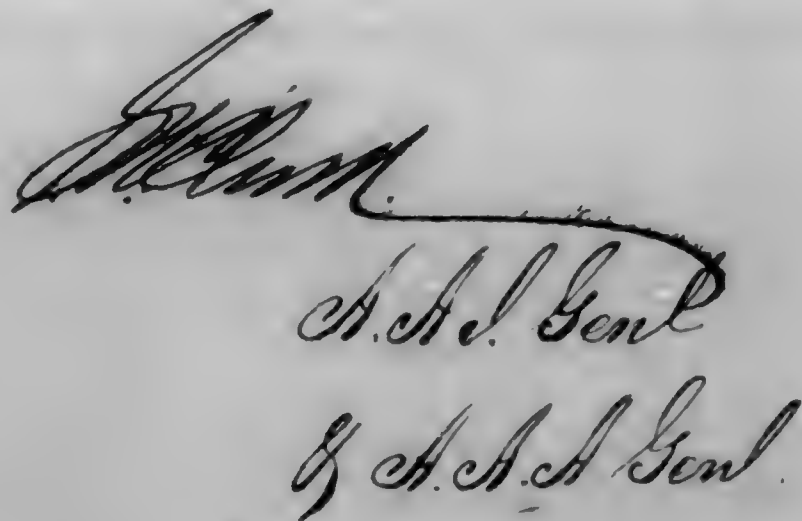 A.A.I. Genl
& A.A.A Genl.